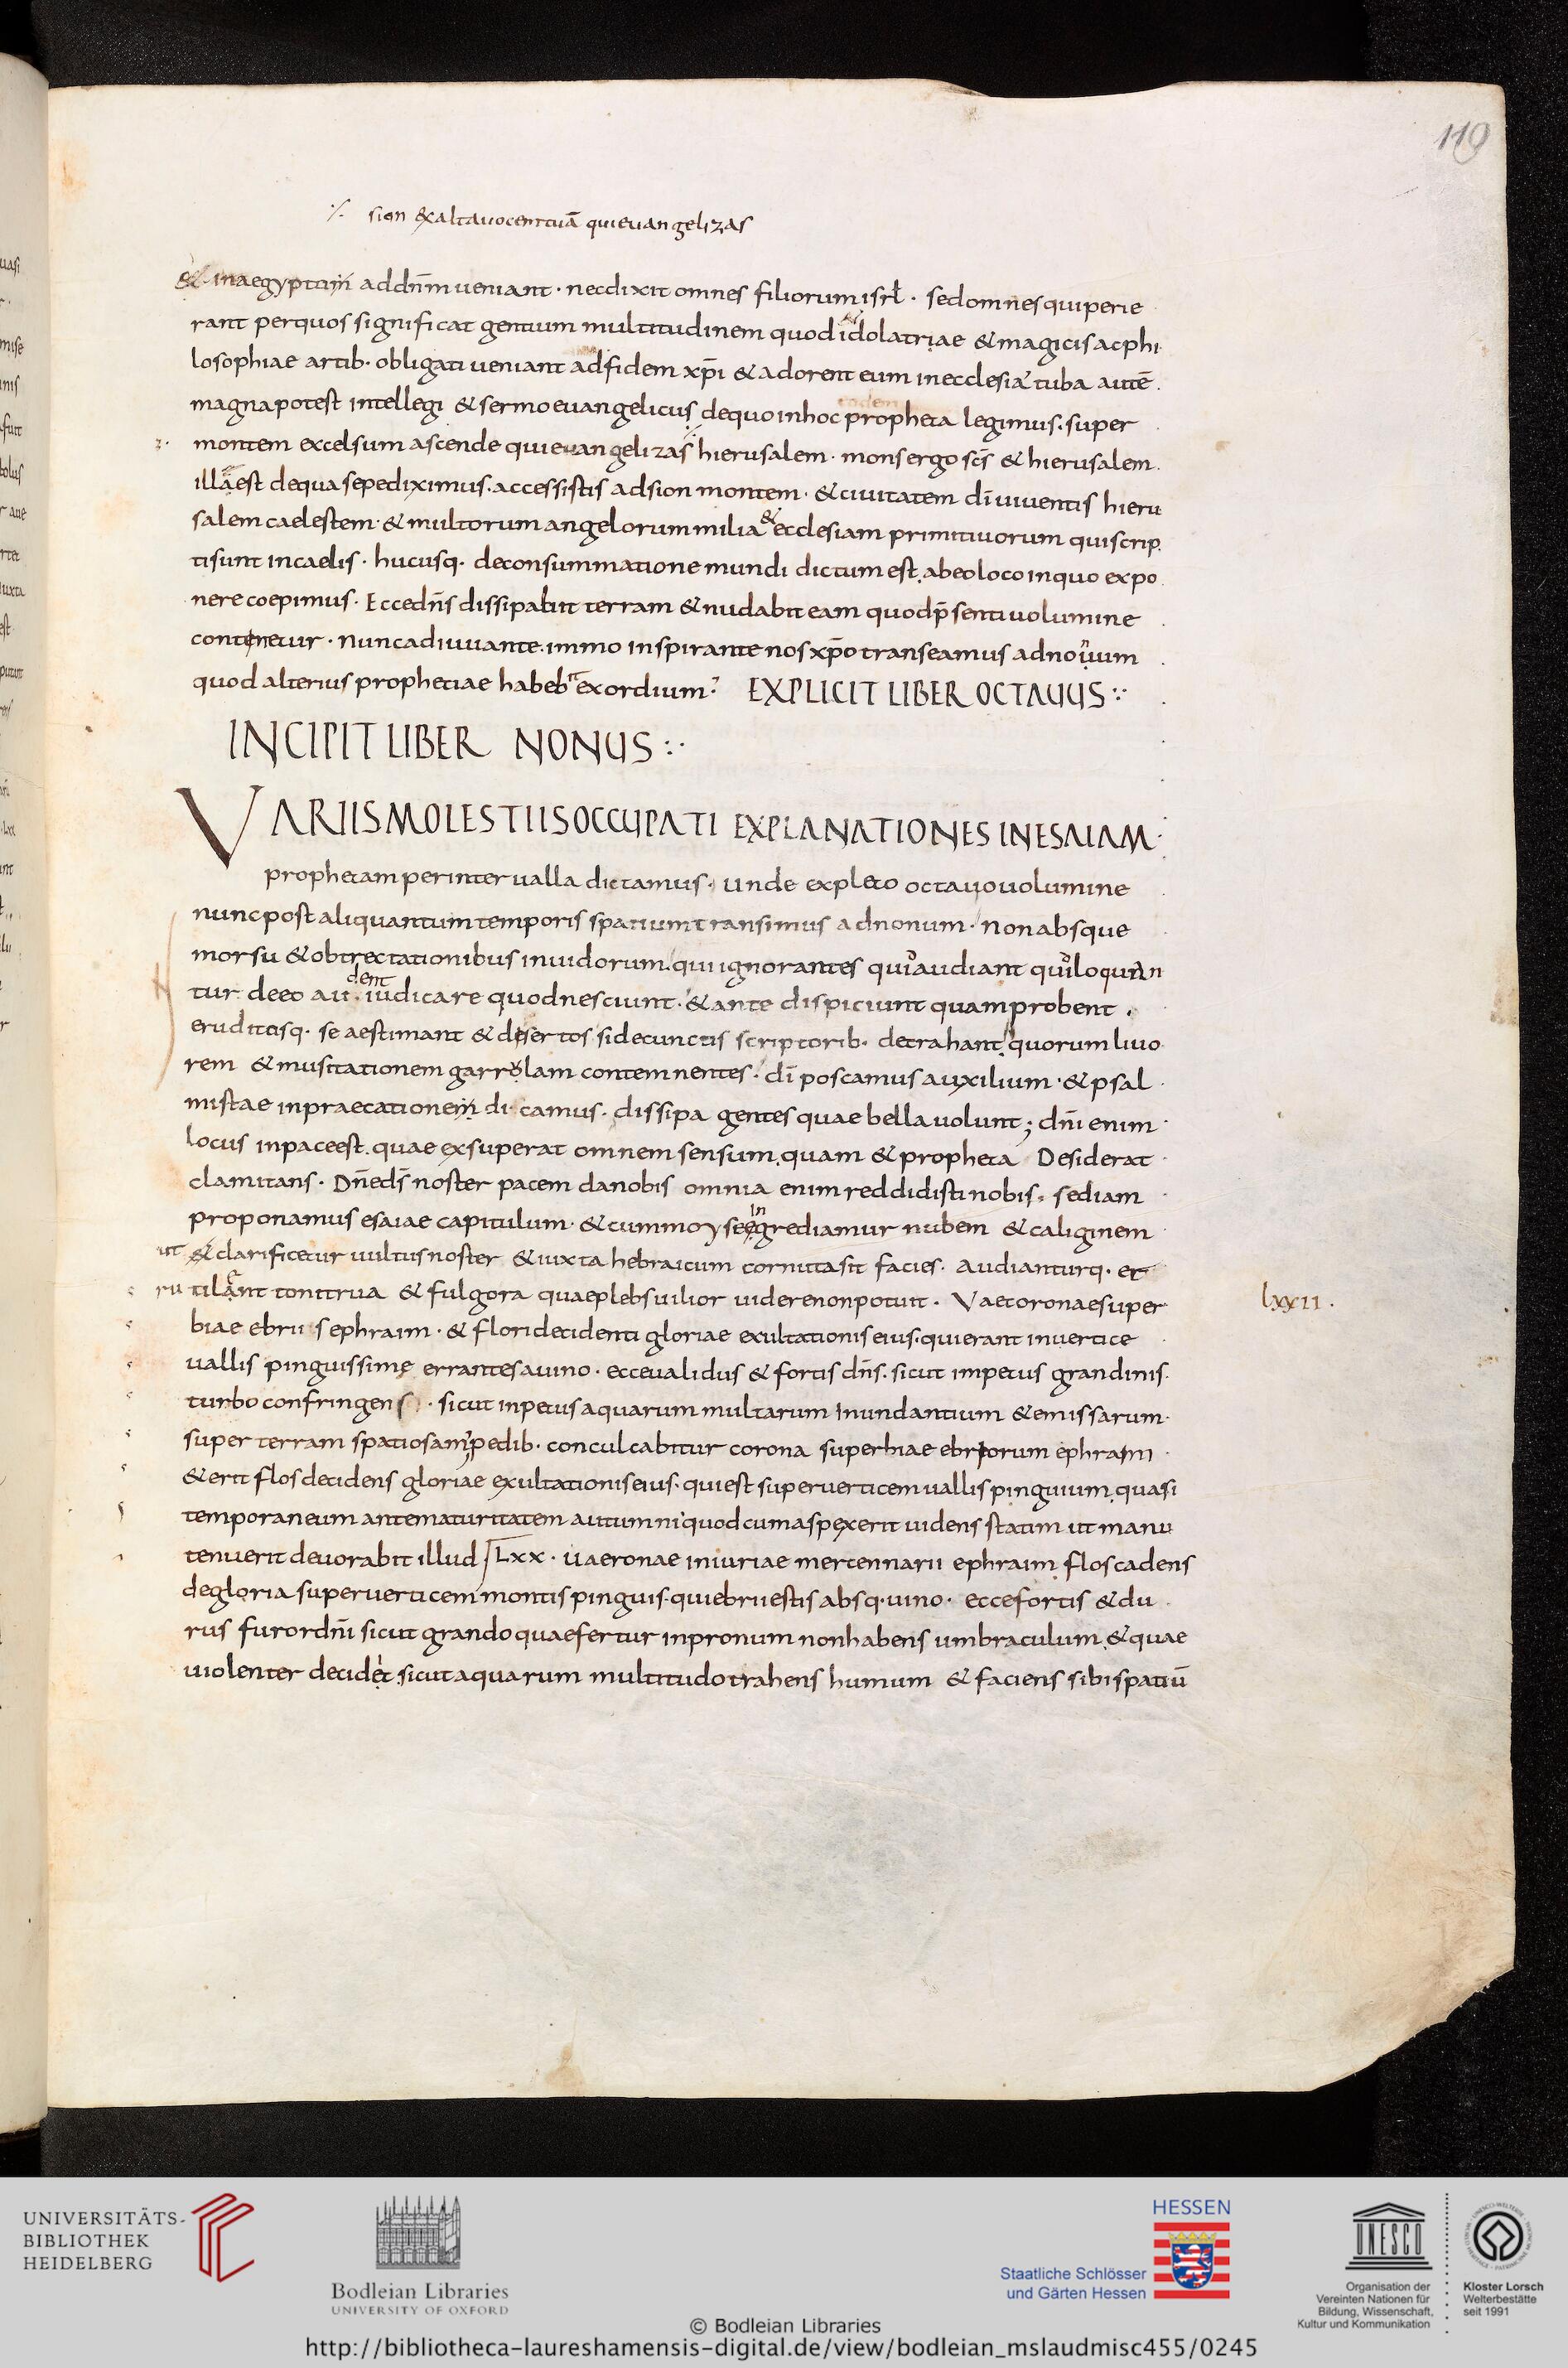 119
⁒ sion &exaltauocemtuā quieuangelizas
&inaegyptum addn̄m ueniant · necdixit omnes filiorum isrł · sedomnes quiperie
rant perquos significat gentium multitudinem quod idolatriae &magicis acphi
losophiae artib· obligati ueniant adfidem xp̄i &adorent eum inecclesia· tuba autē
magna potest intellegi &sermo euangelicus dequo inhoc propheta legimus. super
montem excelsum ascende quieuangelizas hierusalem · mons ergo sc̄s &hierusalem
illa est dequa sepediximus. accessistis adsion montem · &ciuitatem dī uiuentis hieru
salem caelestem· &multorum angelorum milia & ecclesiam primitiuorum quiscrip
tisunt incaelis · hucusq· deconsummatione mundi dictum est. abeoloco inquo expo
nere coepimus · Eccedn̄s dissipabit terram &nudabit eam quod p̄senti uolumine
contenetur · nunc adiuuante. immo inspirante nos xp̄o transeamus ad nouum
quod alterius prophetiae habebit exordium· EXPLICIT LIBER OCTAUUS
INCIPIT LIBER NONUS
VARIIS MOLESTIIS OCCUPATI EXPLANATIONES INESAIAM
prophetam perinterualla dictamus · unde expleto octauo uolumine
nunc post aliquantum temporis spatium transimus adnonum · Non absque
morsu &obtrectationibus inuidorum. qui ignorantes quid audiant quid loquun
tur deeo audent iudicare quod nesciunt · &ante dispiciunt quam probent .
eruditosq· se aestimant &disertos sidecunctis scriptorib· detrahant quorum liuo
rem &musitationem garrulam contemnentes · dī poscamus auxilium · &psal
mistae inpraecationem dicamus · dissipa gentes quae bella uolunt; dn̄i enim
locus inpace est. quae exsuperat omnem sensum. quam &propheta Desiderat
clamitans · Dn̄e ds̄ noster pacem danobis omnia enim reddidisti nobis. sed iam
proponamus esaiae capitulum · &cum moyse ingrediamur nubem &caliginem
ut &clarificetur uultus noster &iuxta hebraicum cornuta sit facies · Audianturq· et
rutilant tonitrua &fulgora quae plebs uilior uidere nonpotuit · Vae coronae super
lxxii .
biae ebriis ephraim · &flori decidenti gloriae exultationis eius. quierant inuertice
uallis pinguissime errantes auino · ecce ualidus &fortis dn̄s. sicut impetus grandinis
turbo confringens · sicut inpetus aquarum multarum Inundantium &emissarum
super terram spatiosam pedib· conculcabitur corona superbiae ebriorum ephraim
&erit flos decidens gloriae exultationis eius· quiest superuerticem uallis pinguium. quasi
temporaneum ante maturitatem autumni quod cum aspexerit uidens statim ut manu
tenuerit deuorabit illud LXX · uae coronae iniuriae mercennarii ephraim flos cadens
degloria superuerticem montis pinguis· quiebrii estis absq· uino · ecce fortis &du
rus furor dn̄i sicut grando quae fertur inpronum non habens umbraculum &quae
uiolenter decidet. sicut aquarum multitudo trahens humum &faciens sibi spatiū
UNIVERSITÄTS-
BIBLIOTHEK
HEIDELBERG
Bodleian Libraries
UNIVERSITY OF OXFORD
HESSEN
Staatliche Schlösser
und Gärten Hessen
UNESCO
Organisation der
Vereinten Nationen für
Bildung, Wissenschaft,
Kultur und Kommunikation
Kloster Lorsch
Welterbestätte
seit 1991
© Bodleian Libraries
http://bibliotheca-laureshamensis-digital.de/view/bodleian_mslaudmisc455/0245